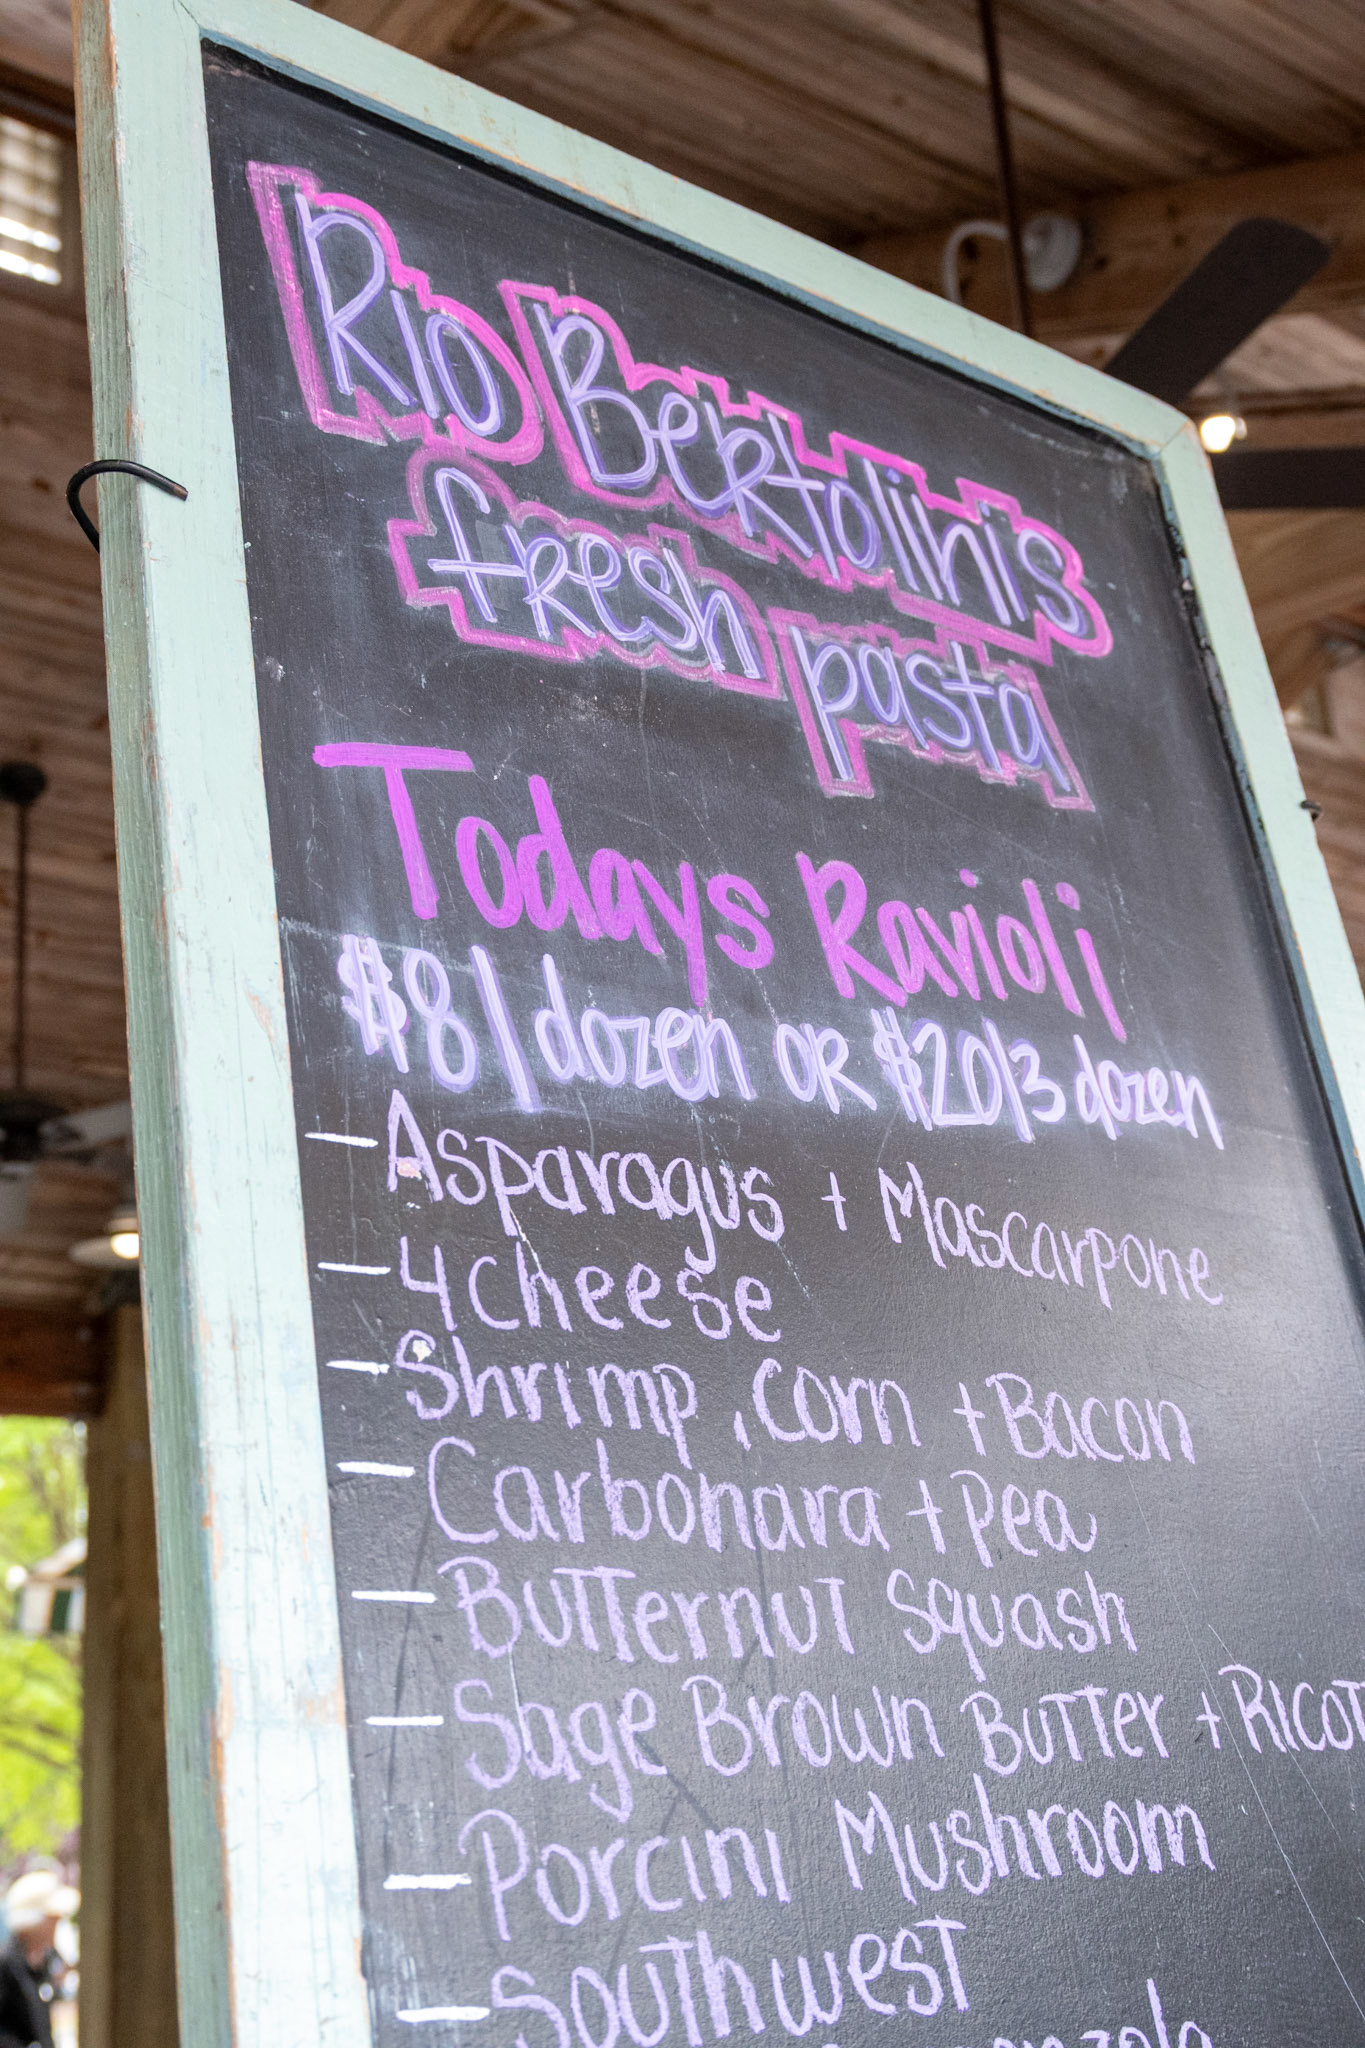 Rio Bertolini's
fresh pasta
Todays Ravioli
$8/dozen or $20/3 dozen
- Asparagus + Mascarpone
- 4 cheese
- Shrimp, Corn + Bacon
- Carbonara + Pea
- Butternut Squash
- Sage Brown Butter + Ricot
- Porcini Mushroom
- Southwest